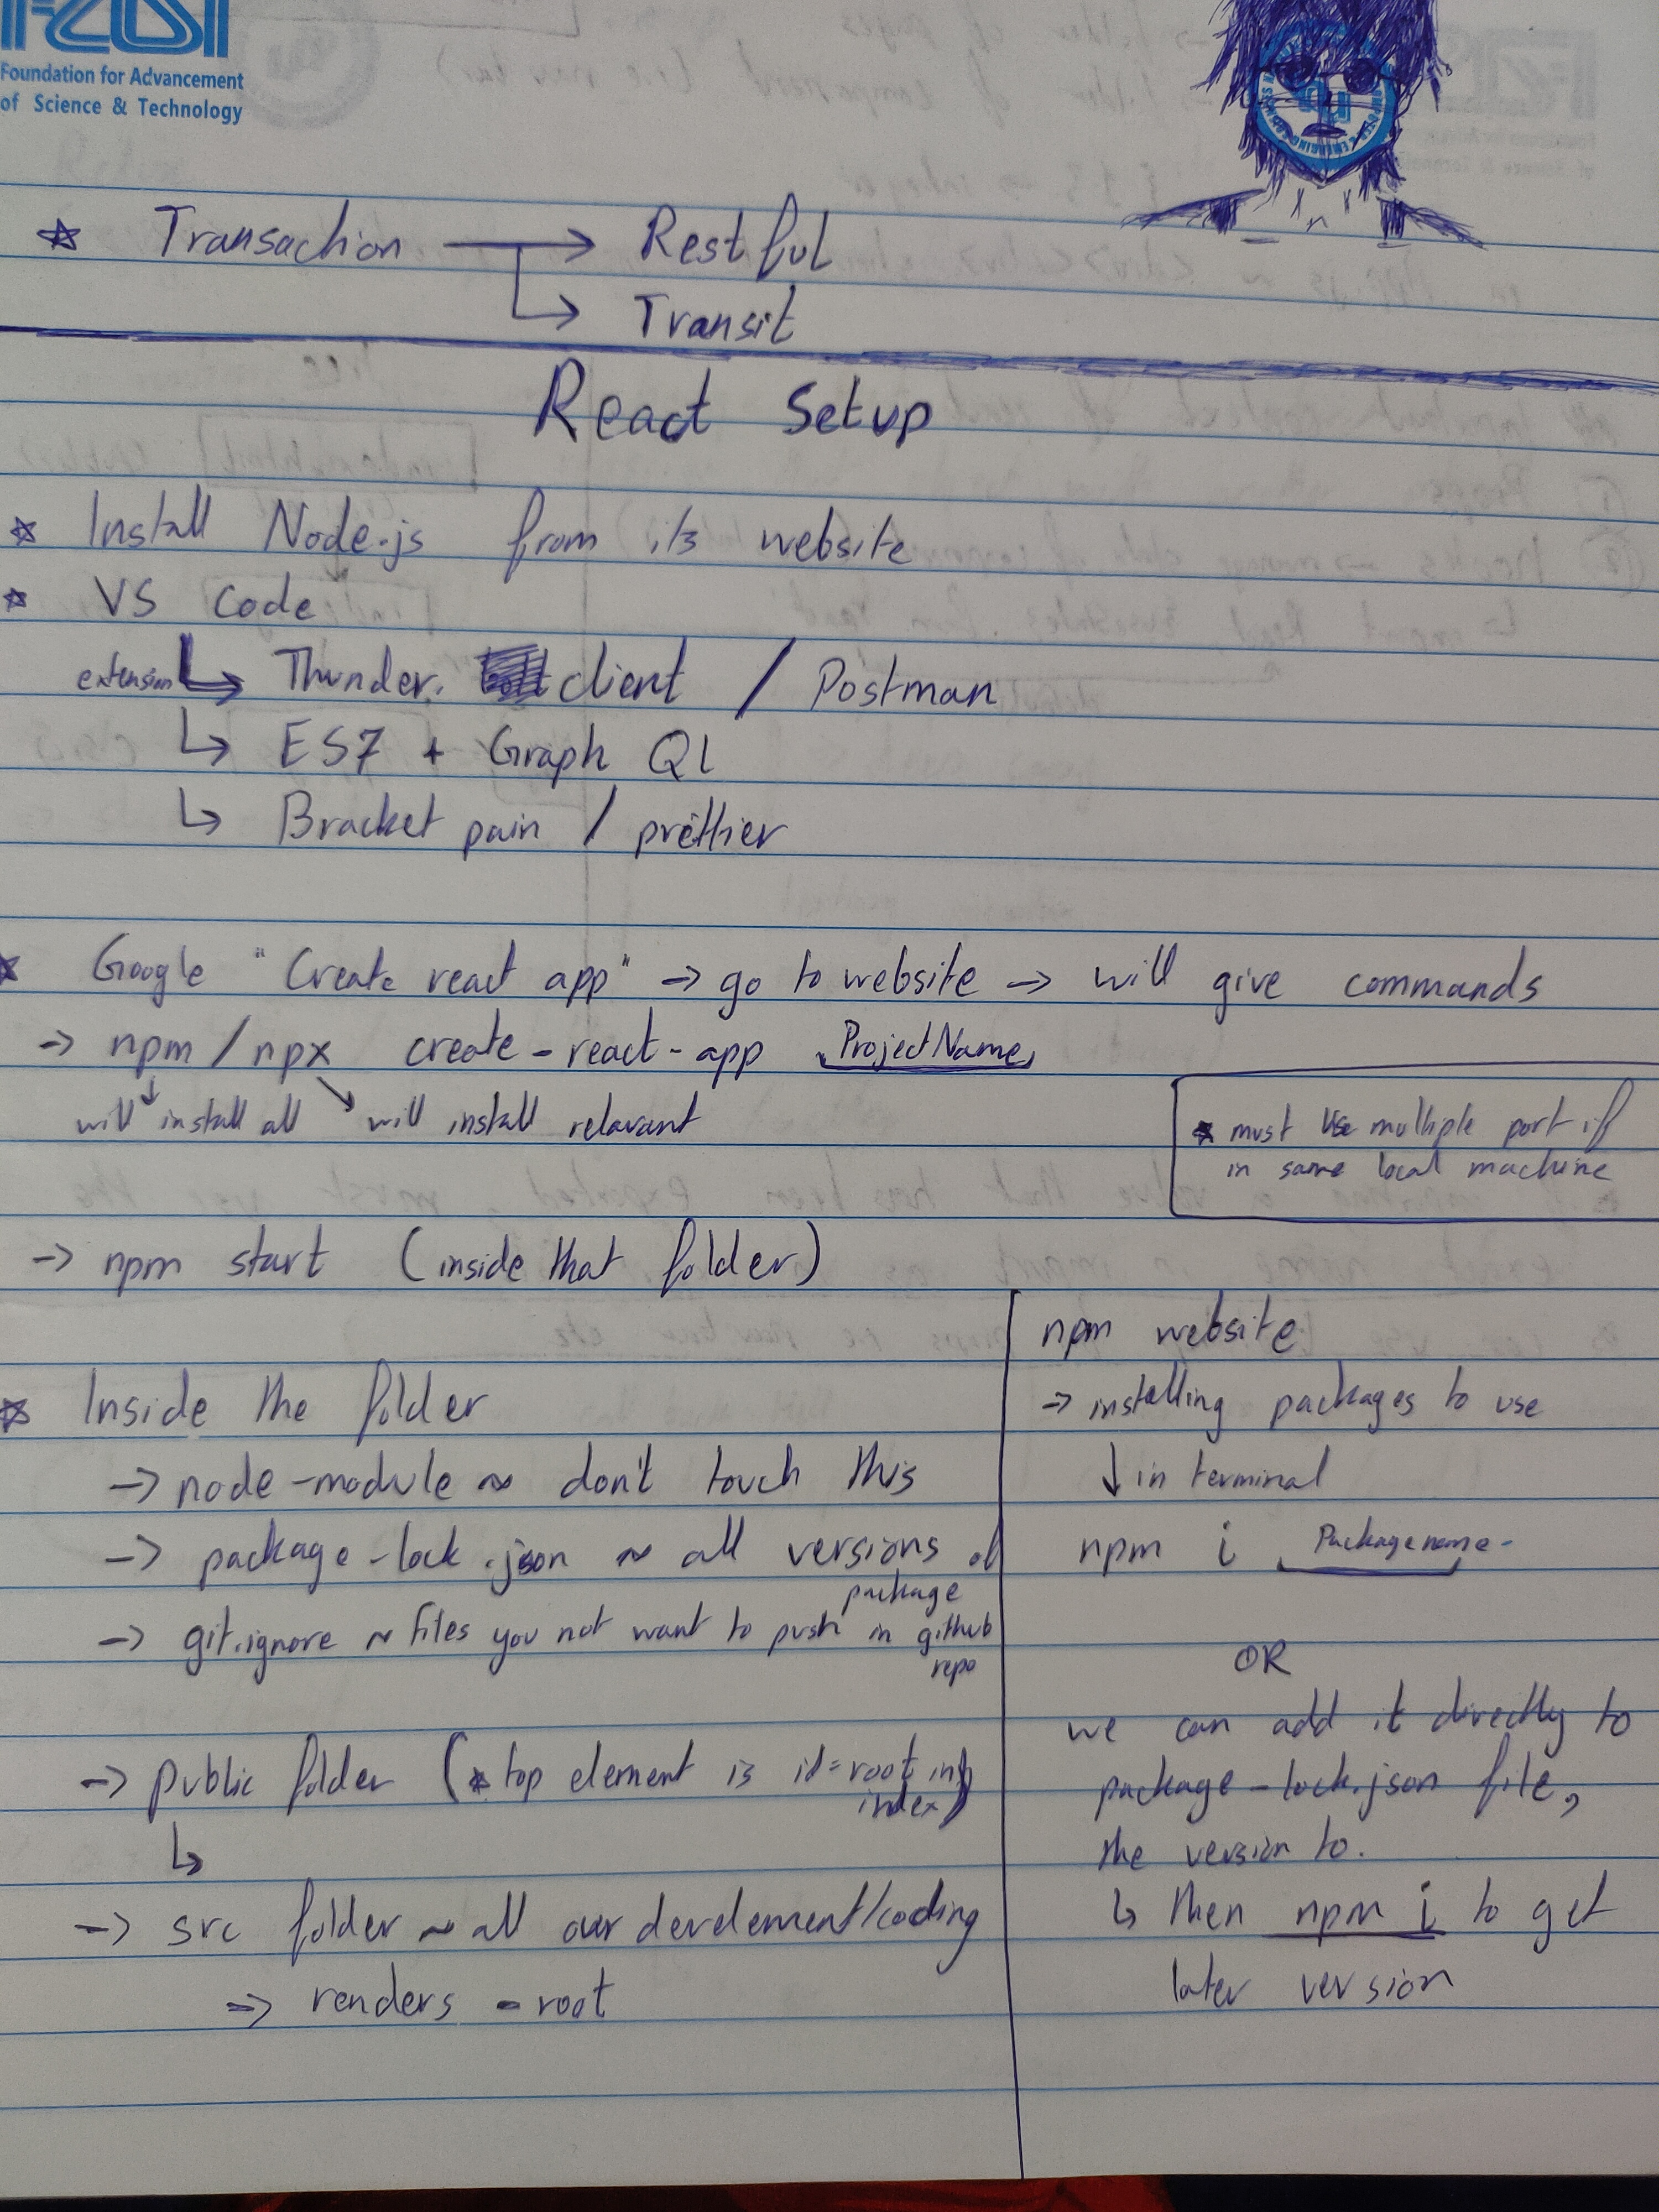 Foundation for Advancement
of Science & Technology
☆ Transaction → Restful
↳ Transit
React Setup
☆ Install Node.js from its website
☆ VS Code
extension ↳ Thunder. client / Postman
↳ ES7 + Graph Ql
↳ Bracket pain / prettier
☆ Google "Create react app" → go to website → will give commands
→ npm / npx create-react-app ProjectName
will install all will install relavant
☆ must use multiple port if
in same local machine
→ npm start (inside that folder)
☆ Inside the folder
→ node-module ~ don't touch this
→ package-lock.json ~ all versions of
package
→ git.ignore ~ files you not want to push in github
repo
→ public folder (☆ top element is id=root in
index)
↳
→ src folder ~ all our develement/coding
→ renders - root
npm website
→ installing packages to use
↓ in terminal
npm i Packagename
OR
we can add it directly to
package-lock.json file,
the version to.
↳ then npm i to get
later version